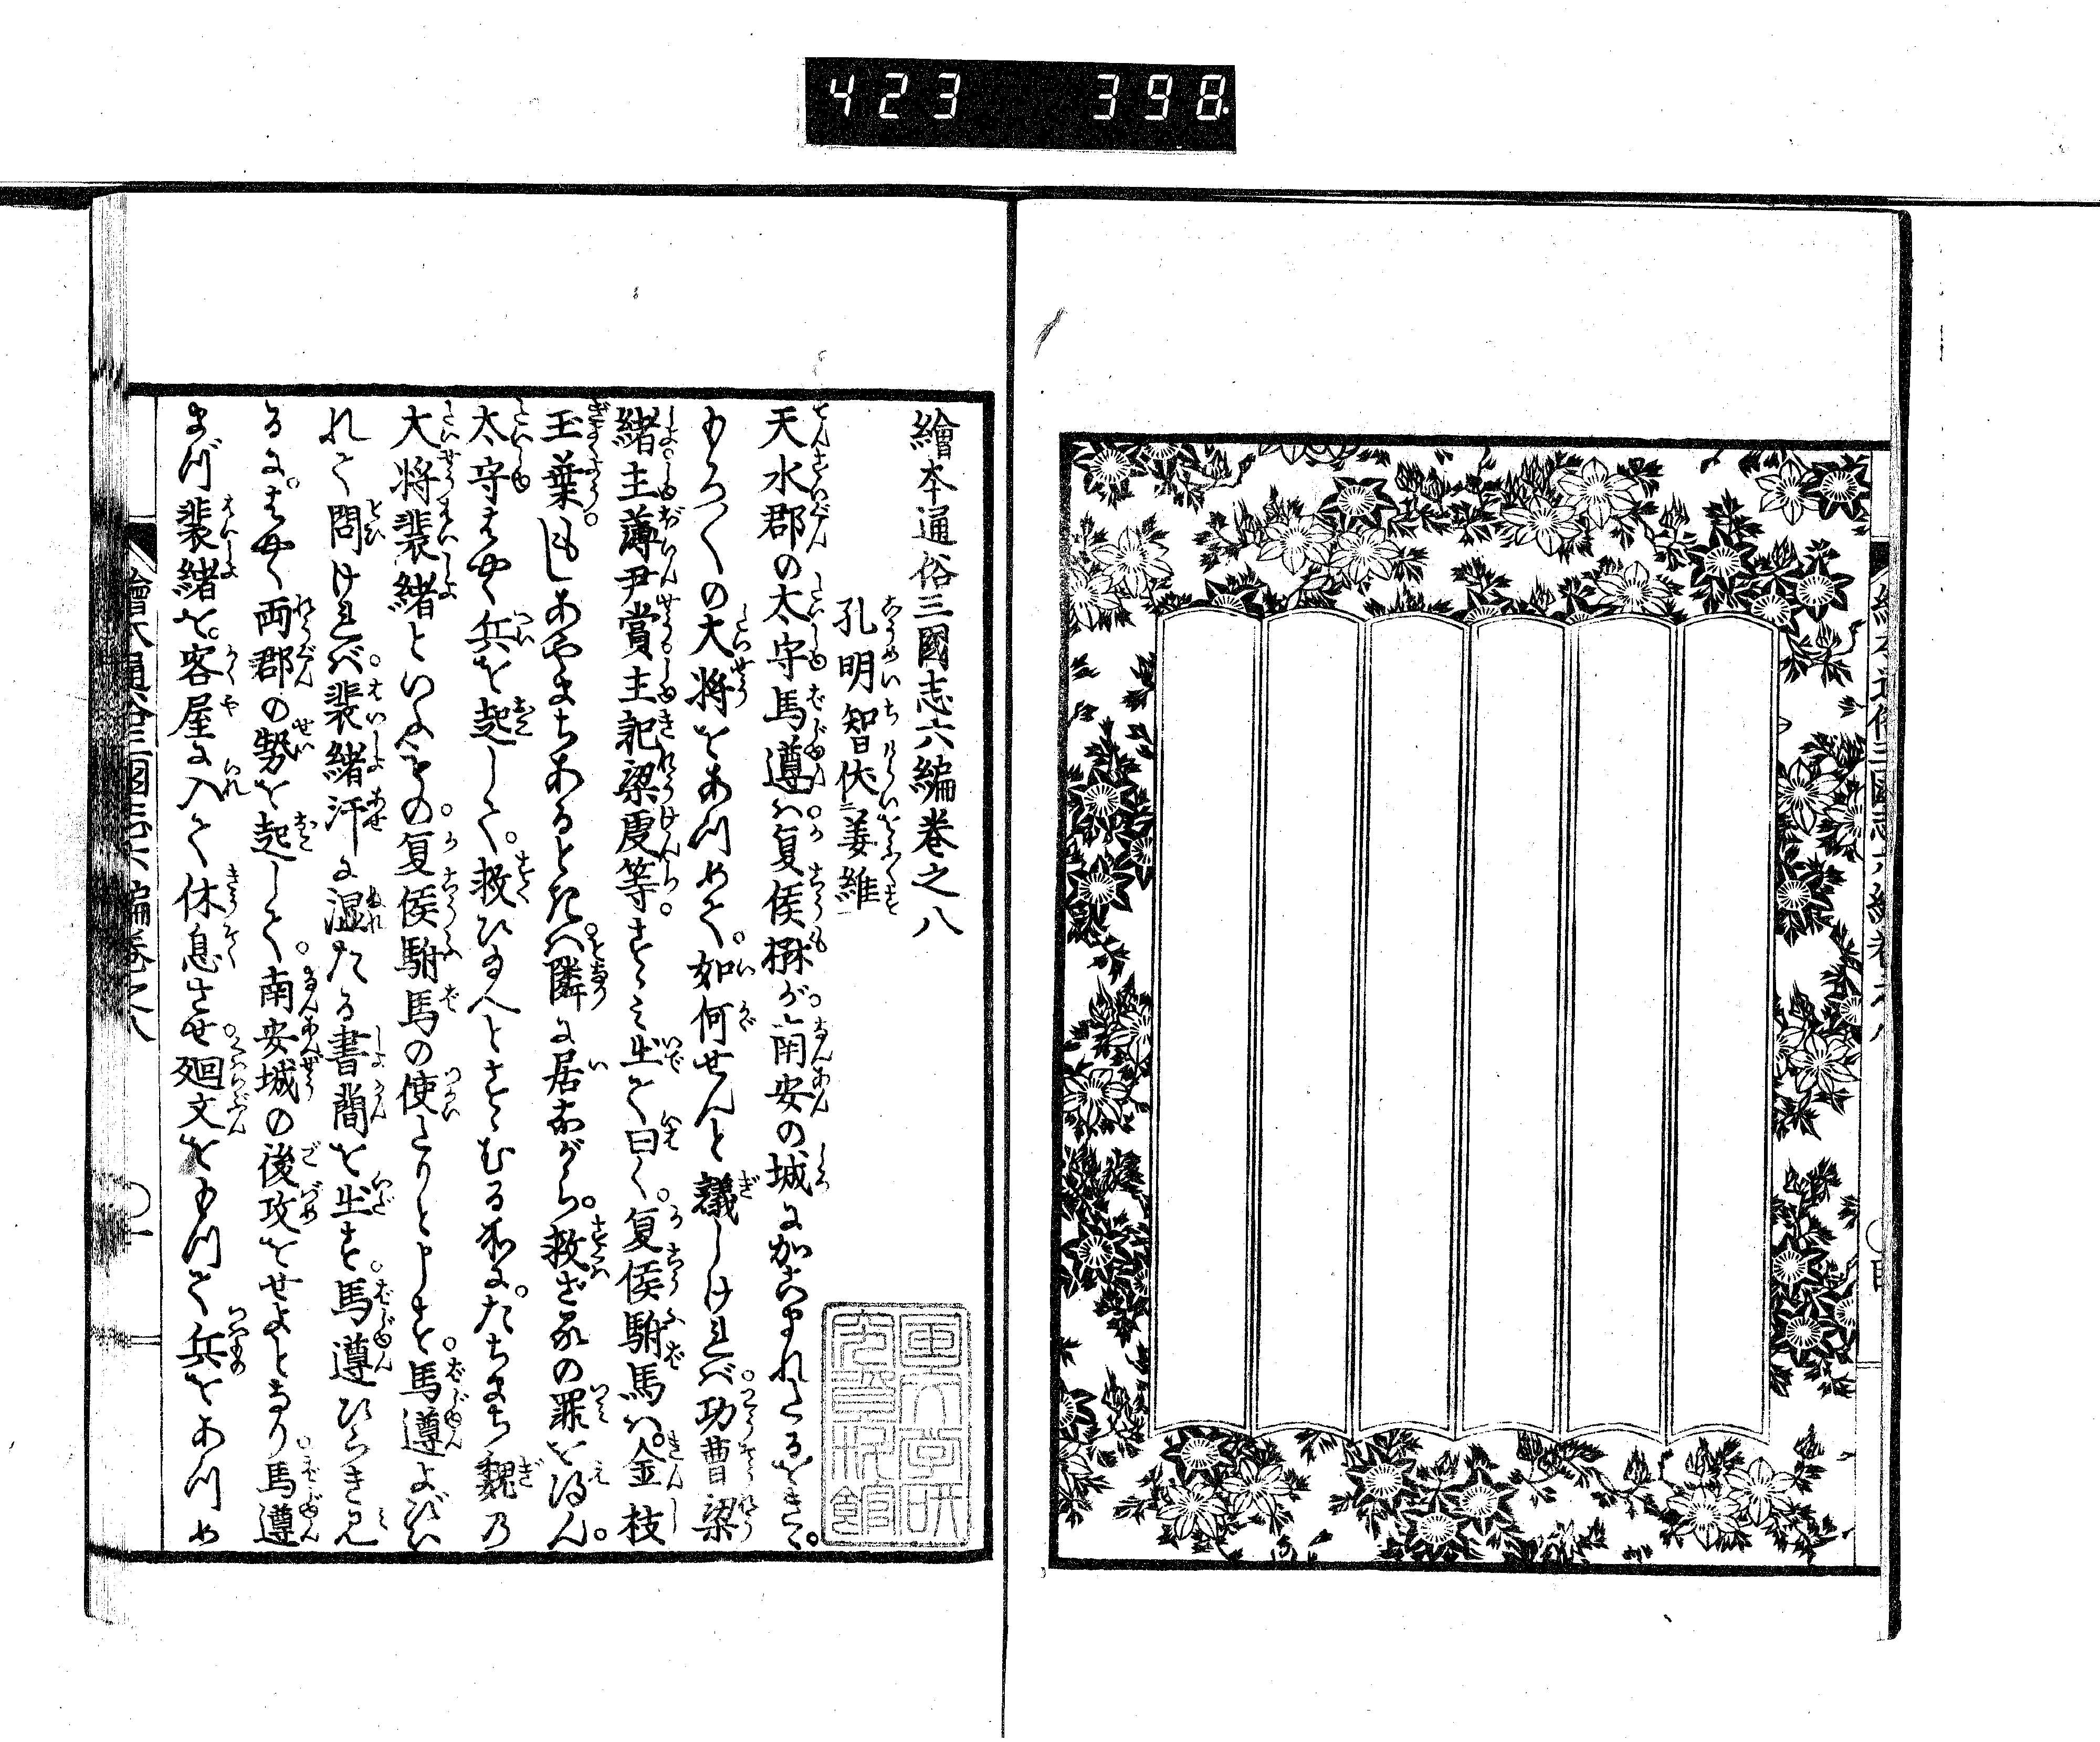 423 398
繪本通俗三國志六編巻之八
孔明智伏姜維
天水郡の太守馬遵ハ。夏侯楙が。南安の城に加こまれたるをきゝ。
もろ〱の大将をあつめて。如何せんと議しければ。功曹梁
緒。主簿尹賞。主記梁虔等。すゝミ出て曰く。夏侯駙馬ハ。金枝
玉葉。もしあやまちあるときハ。隣に居ながら。救ざるの罪を得ん。
太守はやく兵を起して。救ひ給へとすゝむる所に。たちまち魏の
大将裴緒といふもの。夏侯駙馬の使たりと申しす。馬遵よびい
れて問ければ。裴緒汗に湿たる書簡を出す。馬遵ひらき見
るに。はやく両郡の勢を起して。南安城の後攻をせよとなり。馬遵
まづ裴緒を。客屋に入て休息させ。廻文をもつて兵をあつめ
繪本通俗三國志六編巻之八
〇一